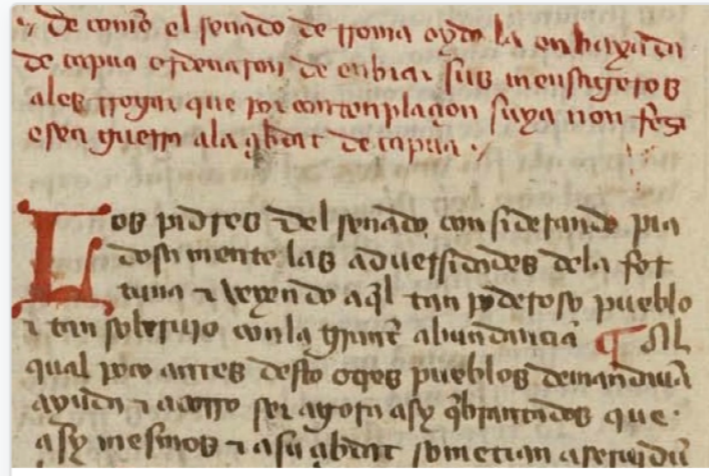 de como el senado de rroma oydo la enbaxada
de capua ordenaron de enbiar sus mensageros
a les rrogar que por contenplaçion suya non fes
esen guerra a la çibdat de capua
Los padres del senado considerando pia
dosa mente las aduersidades dela for
tuna & veyendo aql tan poderoso pueblo
& tan soberuio con la grant abundancia ¶ Al
qual poco antes desto otros pueblos demandauā
ayuda & acorro ser agora asy qbrantados que
asy mesmos & a su çbdat sometian a seruidū